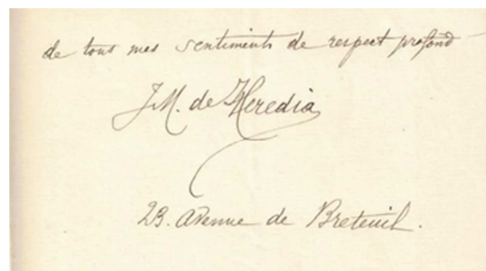 de tous mes sentiments de respect profond
J M. de Heredia
23. avenue de Breteuil.